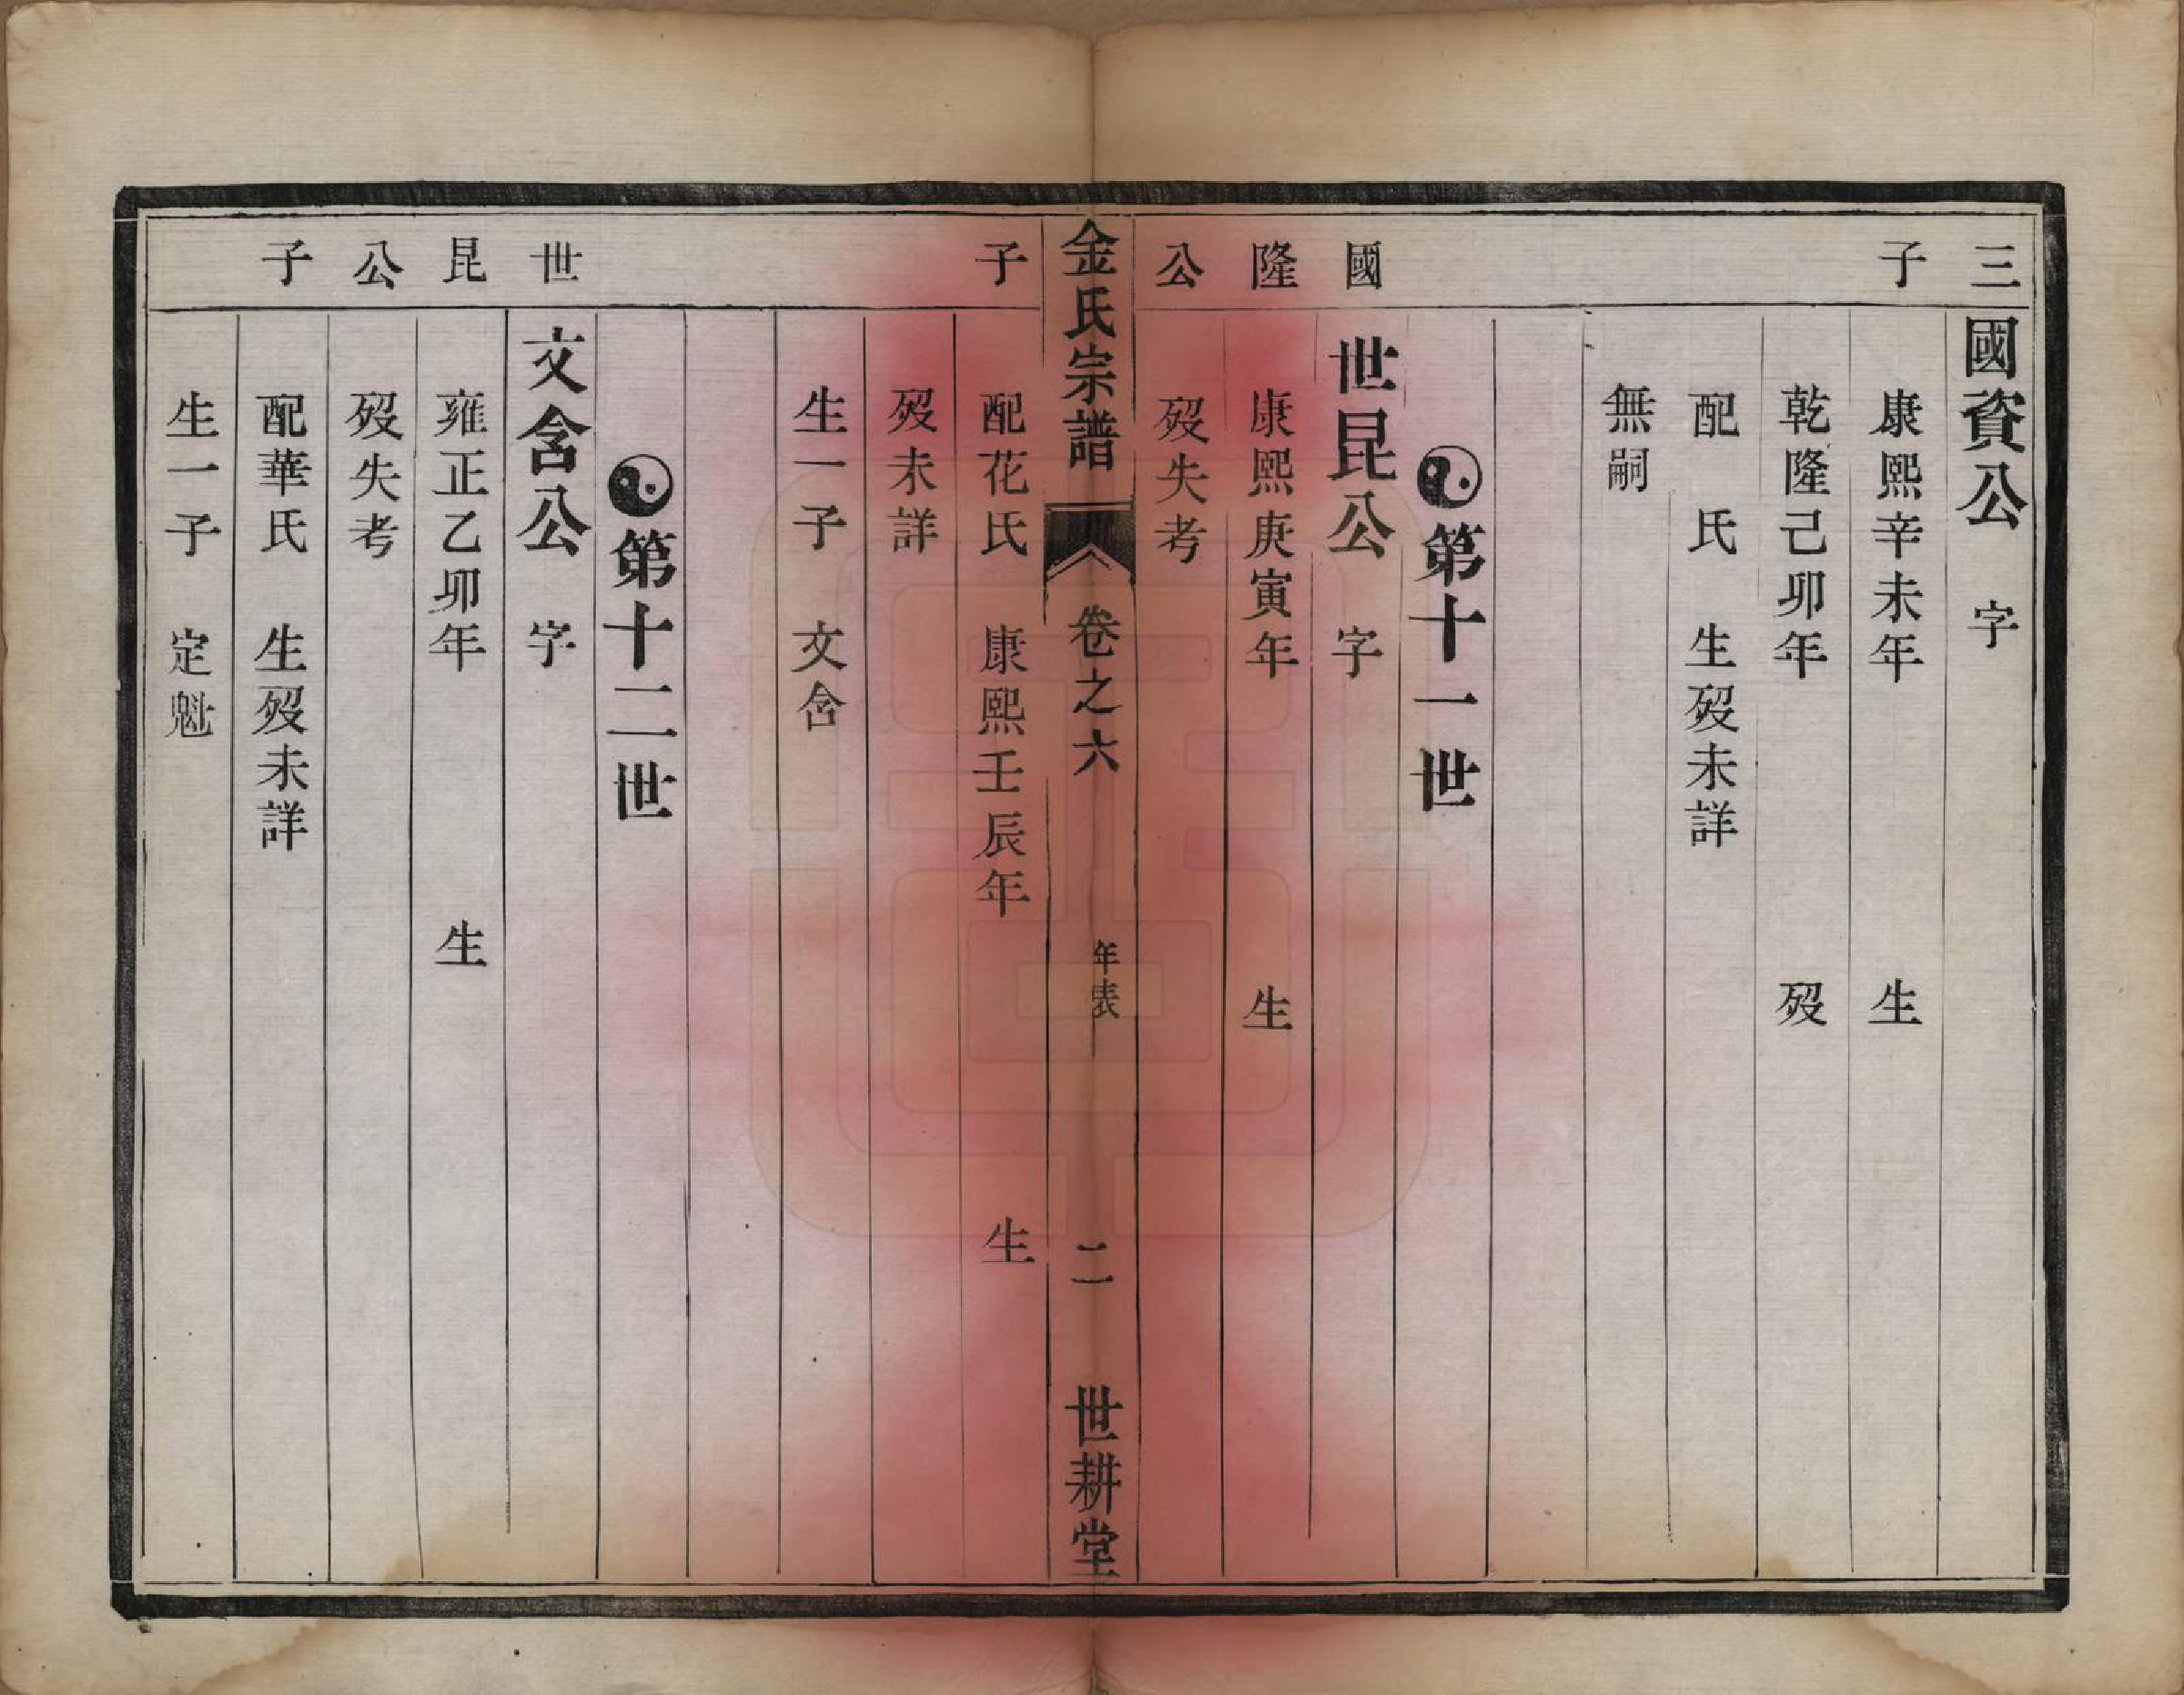 三子
國資公　字
康熙辛未年　生
乾隆己卯年　殁
配　氏　生殁未詳
無嗣
第十一世
國隆公
世昆公　字
康熙庚寅年　生
殁失考
金氏宗譜　卷之六　年表　二　世耕堂
子
配花氏　康熙壬辰年　生
殁未詳
生一子　文含
第十二世
世昆公子
文含公　字
雍正乙卯年　生
殁失考
配華氏　生殁未詳
生一子　定魁